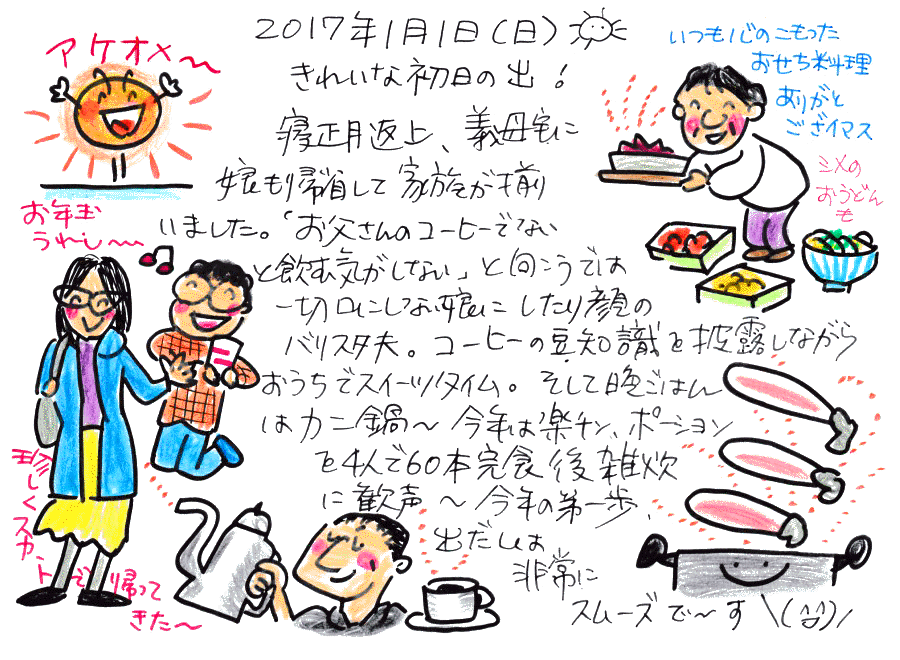 2017年1月1日(日)
きれいな初日の出!
寝正月返上、義母宅に
娘も帰省して家族が揃
いました。「お父さんのコーヒーでない
と飲む気がしない」と向こうでは
一切口にしない娘にしたり顔の
バリスタ夫。コーヒーの豆知識を披露しながら
おうちでスイーツタイム。そして晩ごはん
はカニ鍋〜今年は楽チン、ポーション
を4人で60本完食後雑炊
に歓声〜今年の第一歩、
出だしは
非常に
スムーズで〜す \(^^)/
アケオメ〜
いつも心のこもった
おせち料理
ありがと
ございマス
シメの
おうどん
も
お年玉
うれし〜
珍しくスカートで帰って
きた〜